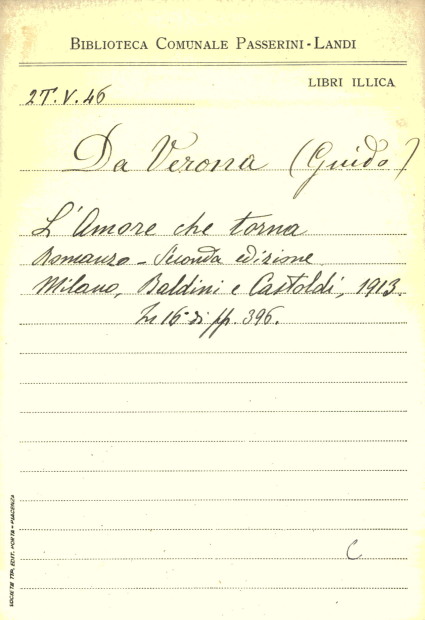 BIBLIOTECA COMUNALE PASSERINI-LANDI
LIBRI ILLICA
2T.V.46
Da Verona (Guido)
L'Amore che torna
Romanzo - Seconda edizione
Milano, Baldini e Castoldi, 1913.
In 16° di pp. 396.
C
SOCIETÀ TIP. EDIT. PORTA - PIACENZA